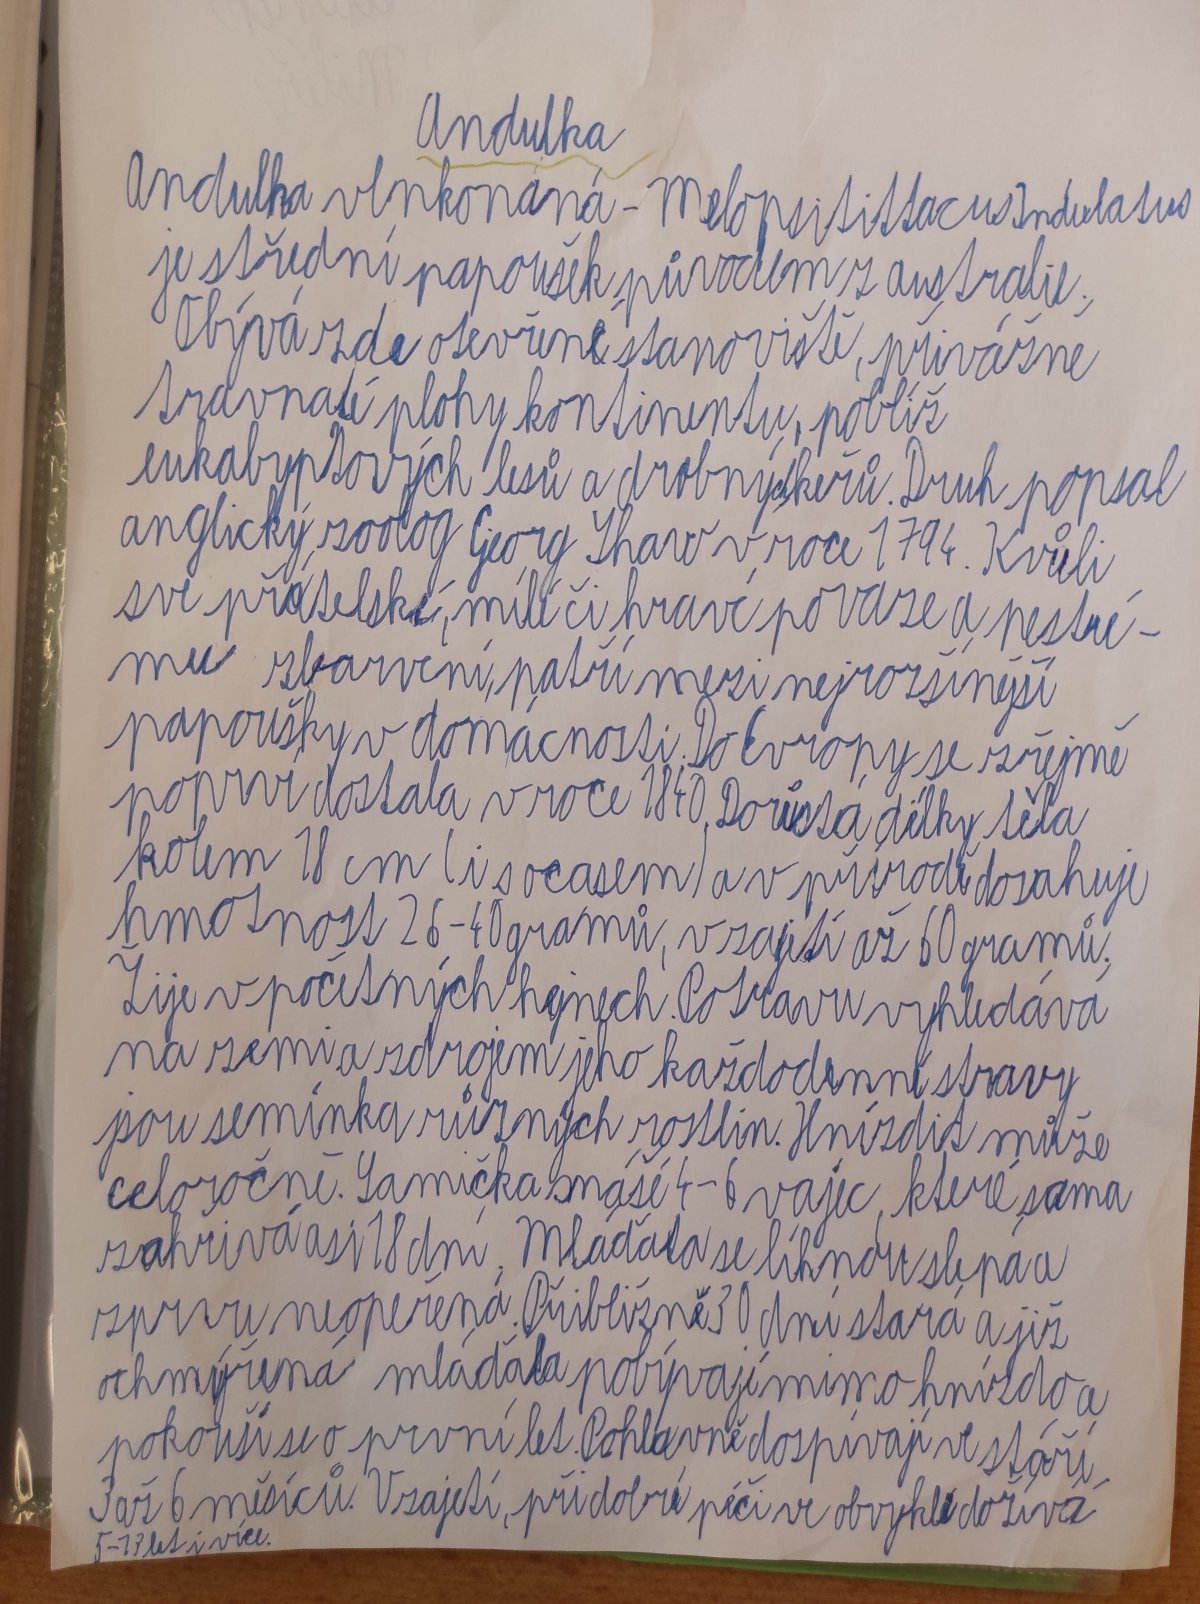 Andulka
Andulka vlnkonáná - Melopsitittacus Indulatus
je střední papoušek, původem z australie.
Obývá zde otevřené stanoviště, přivážně
travnaté plohy kontinentu, poblíž
eukabyptových lesů a drobných keřů. Druh popsal
anglický zoolog Georg Shaw v roce 1794. Kvůli
své přátelské, milé či hravé povaze a pestré-
mu zbarvení, patří mezi nejrozšínější
papoušky v domácnosti. Do Evropy se zřejmě
poprvé dostala v roce 1840. Dorůstá délky těla
kolem 18 cm (i s ocasem) a v přírodě dosahuje
hmotnost 26-40 gramů, v zajetí až 60 gramů.
Žije v početných hejnech. Potravu vyhledává
na zemi a zdrojem jeho každodenní stravy
jsou semínka různých rostlin. Hnízdit může
celoročně. Samička snáší 4-6 vajec, které sama
zahřívá asi 18 dní. Mláďata se líhnou slepá a
zprvu neopeřená. Přibližně 30 dní stará a již
ochmýřená mláďata pobývají mimo hnízdo a
pokouší se o první let. Pohlavně dospívají ve stáří
3 až 6 měsíců. V zajetí, při dobré péči ve obvykle dožívá
5-17 let i více.